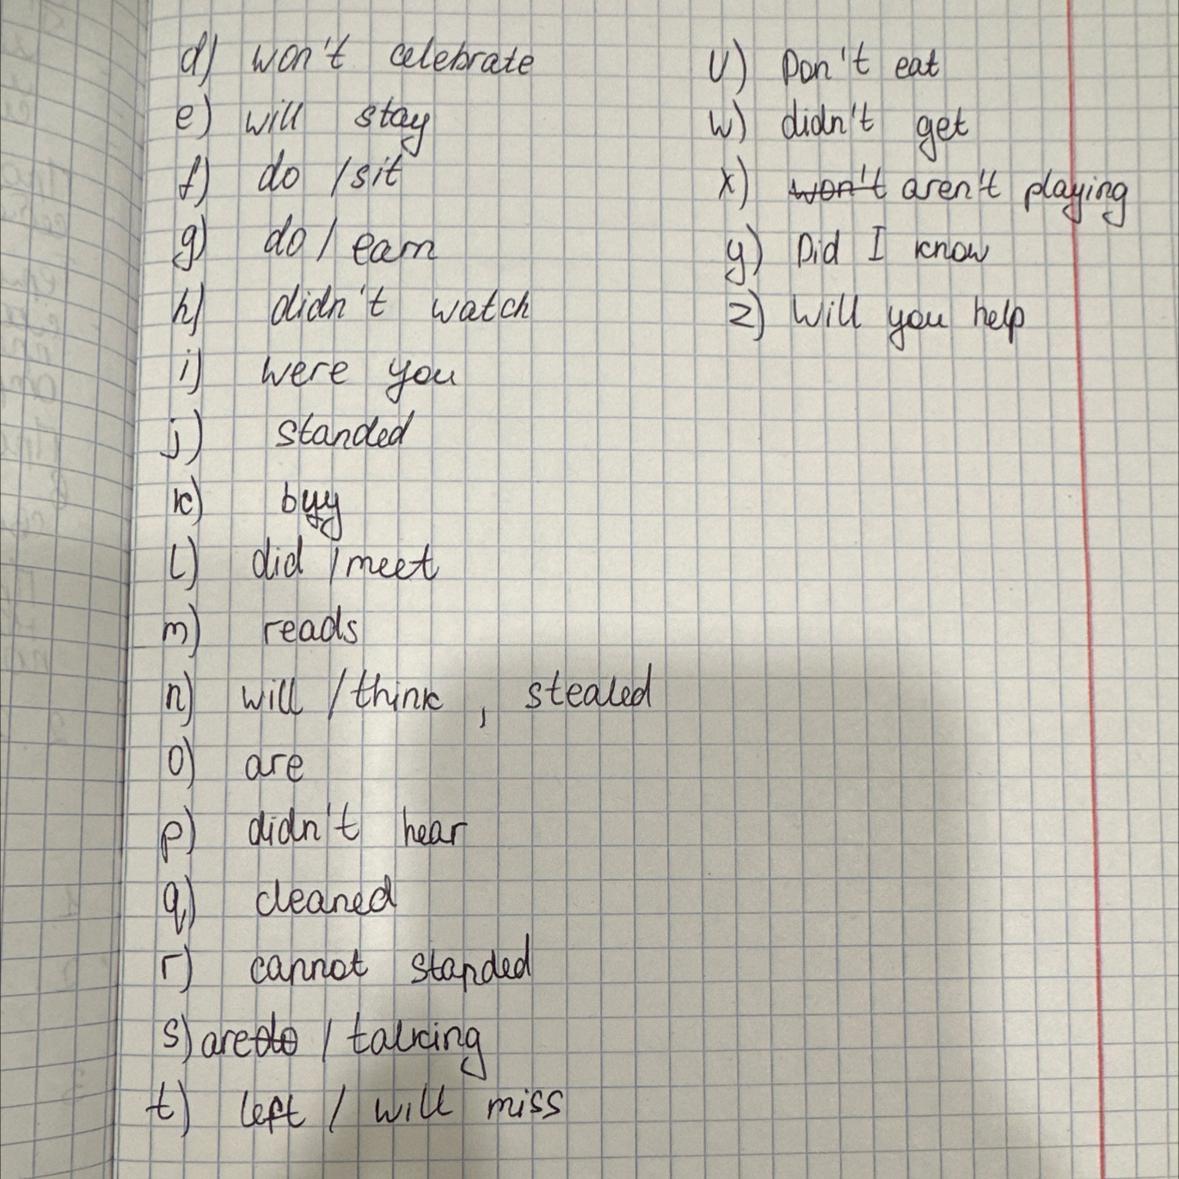 d) won't celebrate
e) will stay
f) do / sit
g) do / earn
h) didn't watch
i) were you
j) standed
k) buy
l) did / meet
m) reads
n) will / think , stealed
o) are
p) didn't hear
q) cleaned
r) cannot standed
s) are / talking
t) left / will miss
U) Don't eat
w) didn't get
x) won't aren't playing
y) Did I know
z) Will you help